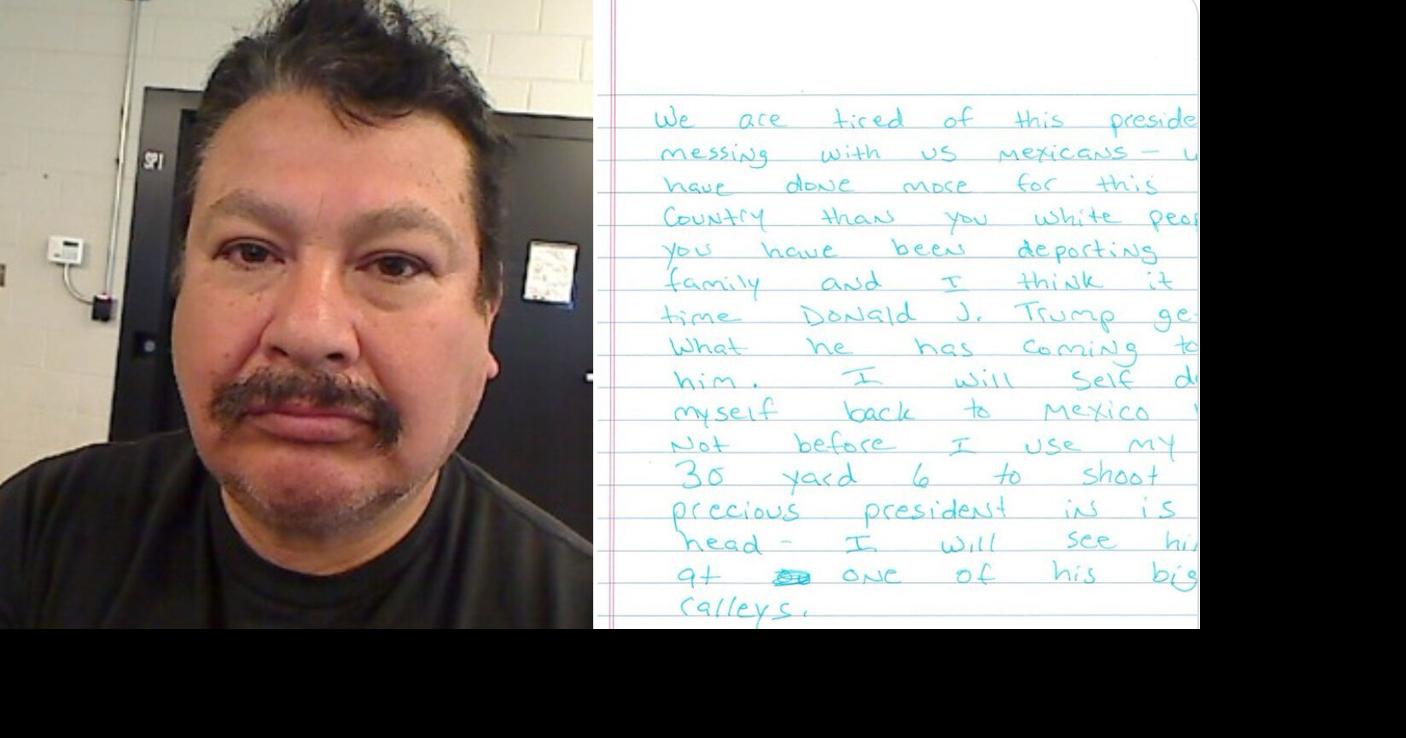 SPI
We are tired of this preside
messing with us mexicans –
have done more for this
Country than you white peo
you have been deporting
family and I think it
time Donald J. Trump ge
What he has coming to
him. I will self d
myself back to mexico
Not before I use my
30 yard 6 to shoot
precious president in is
head - I will see hi
at one of his big
ralleys.